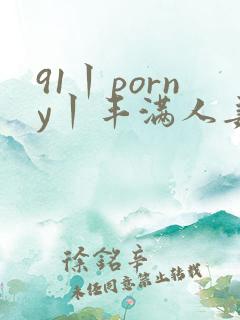 91丨porn
y丨丰满人
徐铭辛
未经同意禁止转载